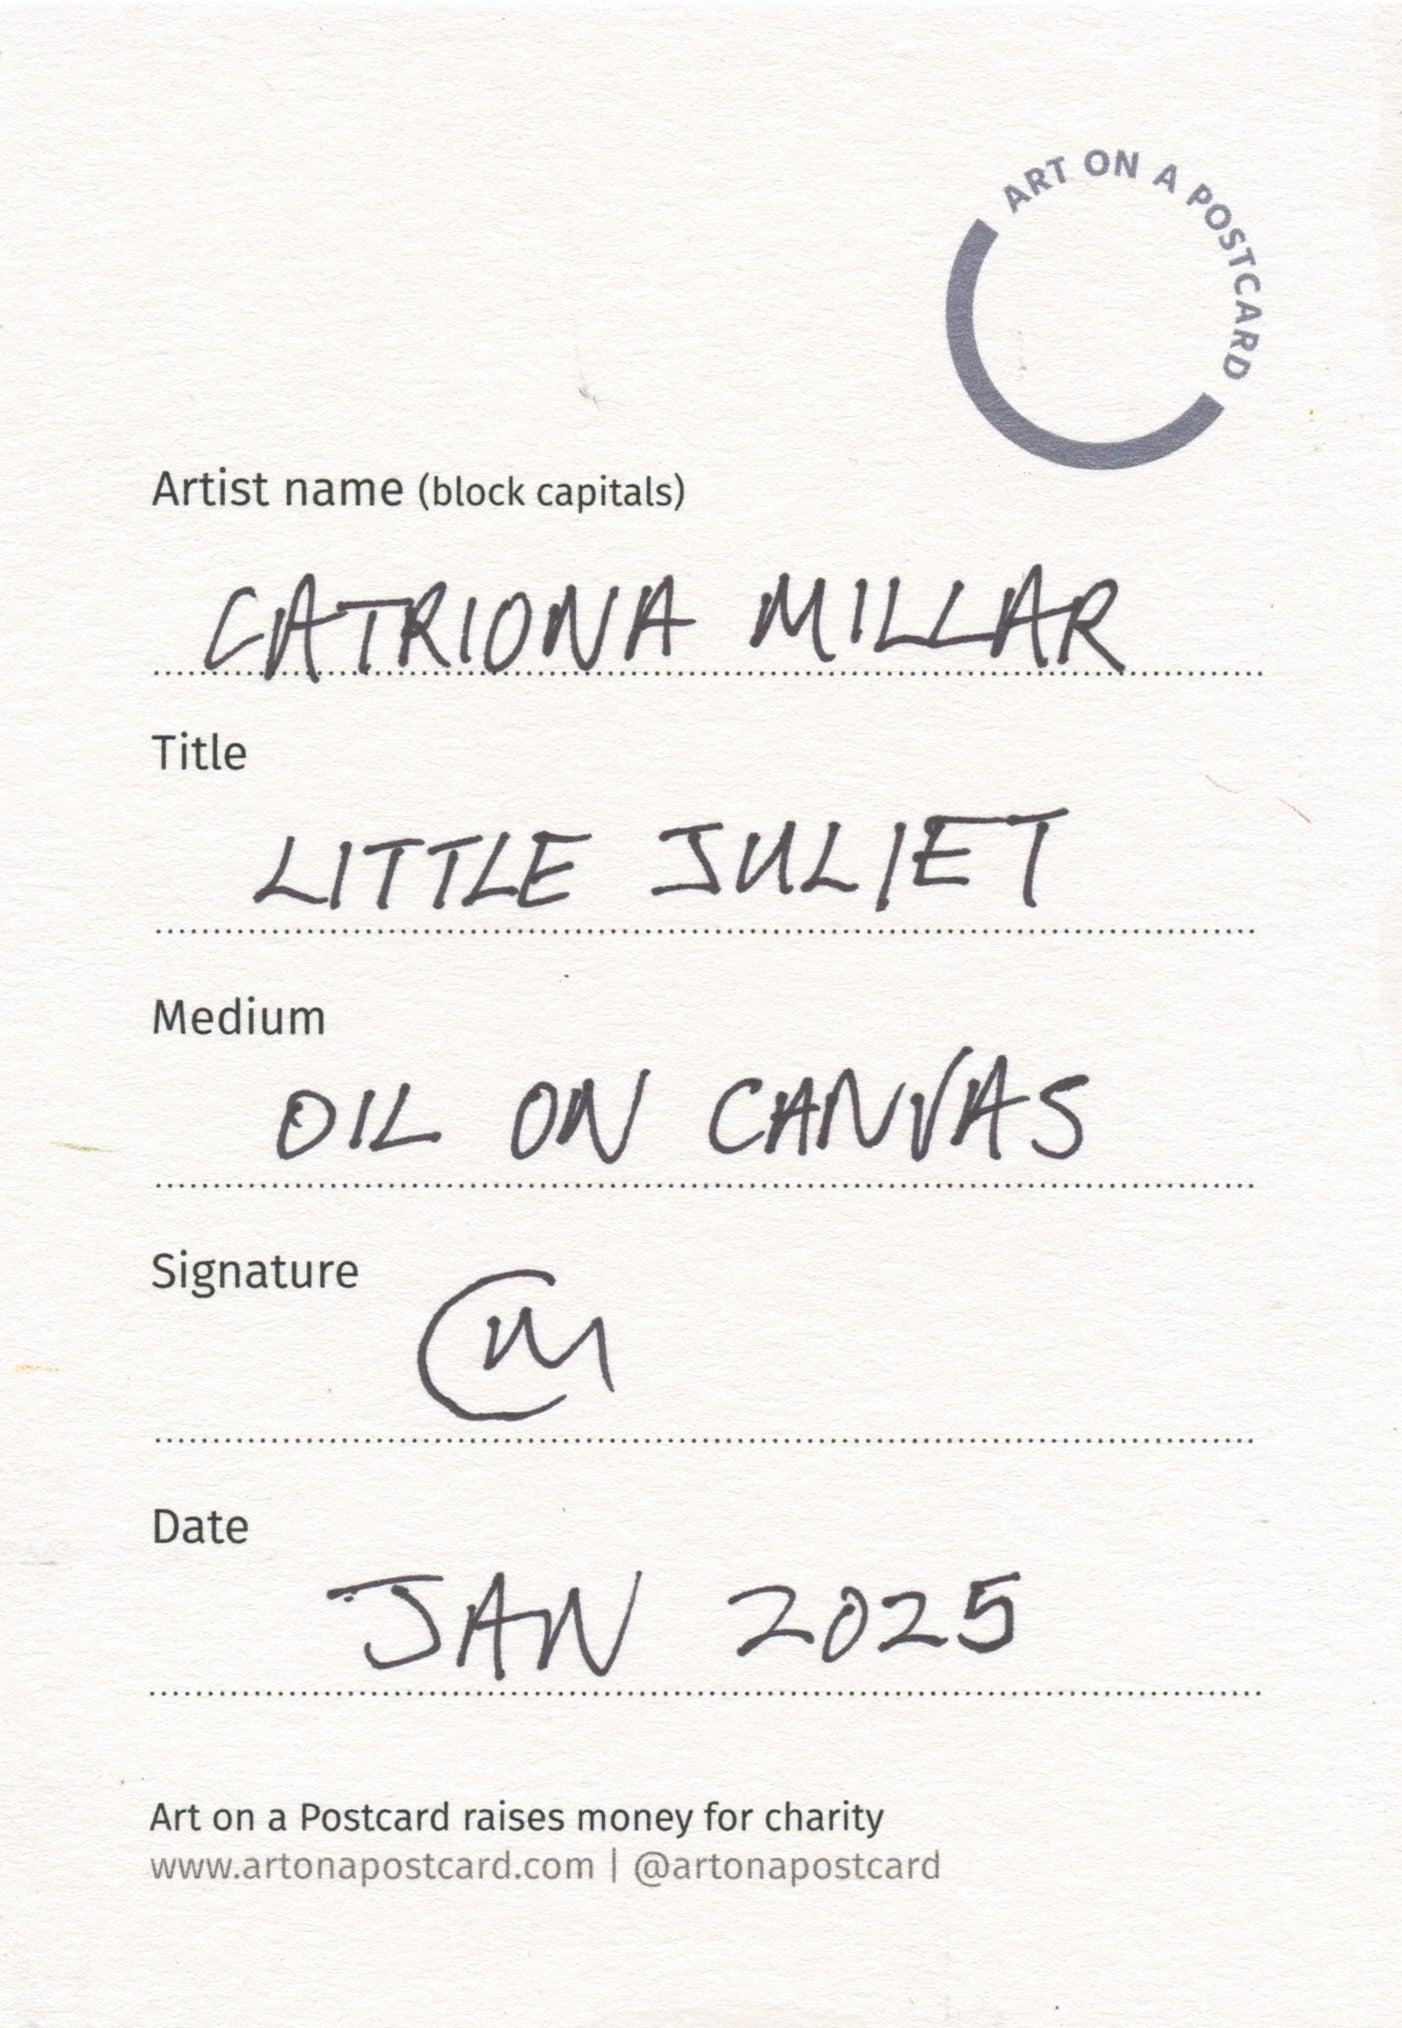 ART ON A POSTCARD
Artist name (block capitals)
CATRIONA MILLAR
Title
LITTLE JULIET
Medium
OIL ON CANVAS
Signature
CM
Date
JAN 2025
Art on a Postcard raises money for charity
www.artonapostcard.com | @artonapostcard